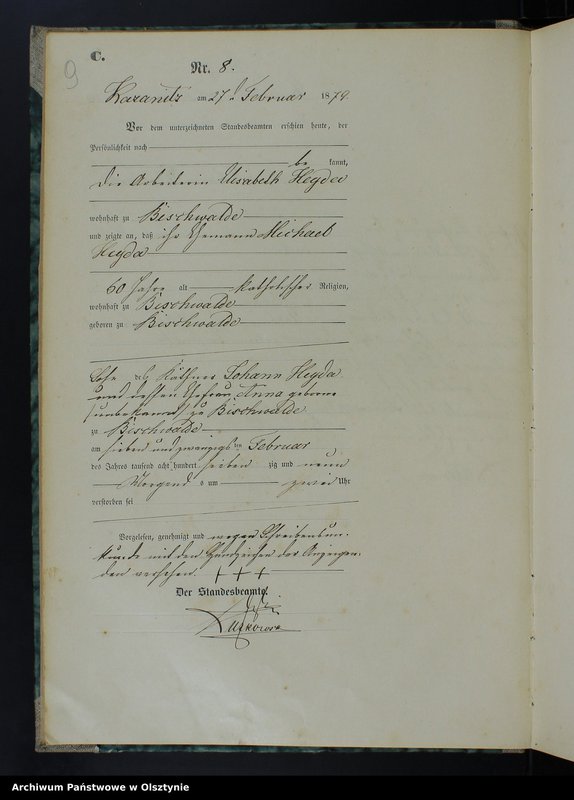 9
C.
Nr. 8.
Kazanitz am 27t Februar 1879.
Vor dem unterzeichneten Standesbeamten erschien heute, der
Persönlichkeit nach
be kannt,
die Arbeiterin Elisabeth Heyda
wohnhaft zu Bischwalde
und zeigte an, daß ihr Ehemann Michael
Heyda
60 Jahre alt katholischer Religion,
wohnhaft zu Bischwalde
geboren zu Bischwalde
Sohn des Käthner Johann Heyda
und dessen Ehefrau Anna geborne
(unbekannt) zu Bischwalde
zu Bischwalde
am sieben und zwanzigsten Februar
des Jahres tausend acht hundert sieben zig und neun
Morgens um zwei Uhr
verstorben sei
Vorgelesen, genehmigt und wegen Schreibensun-
kunde mit den Handzeichen der Anzeigen-
den versehen. + + +
Der Standesbeamte.
Archiwum Państwowe w Olsztynie